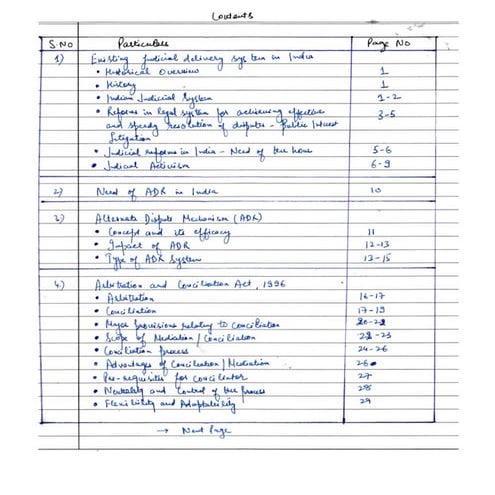 Contents
S.NO Particulars Page No
1) Existing judicial delivery system in India
• Historical Overview 1
• History 1
• Indian Judicial System 1-2
• Reforms in legal system for achieving effective 3-5
and speedy resolution of disputes - Public Interest
Litigation
• Judicial reforms in India - Need of the hour 5-6
• Judicial Activism 6-9
2) Need of ADR in India 10
3) Alternate Dispute Mechanism (ADR)
• Concept and its efficacy 11
• Impact of ADR 12-13
• Type of ADR System 13-15
4) Arbitration and Conciliation Act, 1996
• Arbitration 16-17
• Conciliation 17-19
• Major provisions relating to conciliation 20-22
• Scope of Mediation / Conciliation 22-23
• Conciliation process 24-26
• Advantages of Conciliation / Mediation 26
• Pre-requisites for conciliator 27
• Neutrality and Control of the Process 28
• Flexibility and Adaptability 29
→ Next Page